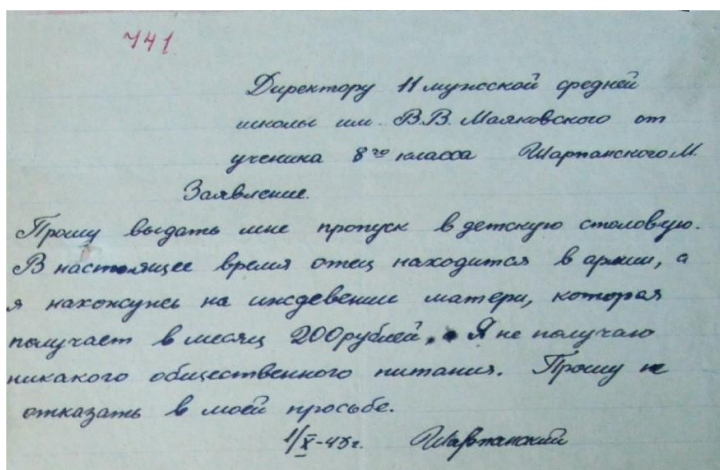 741
Директору 11 мужской средней
школы им. В.В. Маяковского от
ученика 8го класса Шарпанского М.
Заявление.
Прошу выдать мне пропуск в детскую столовую.
В настоящее время отец находится в армии, а
я нахожусь на иждевении матери, которая
получает в месяц 200 рублей. Я не получаю
никакого общественного питания. Прошу не
отказать в моей просьбе.
1/X-45г. Шарпанский